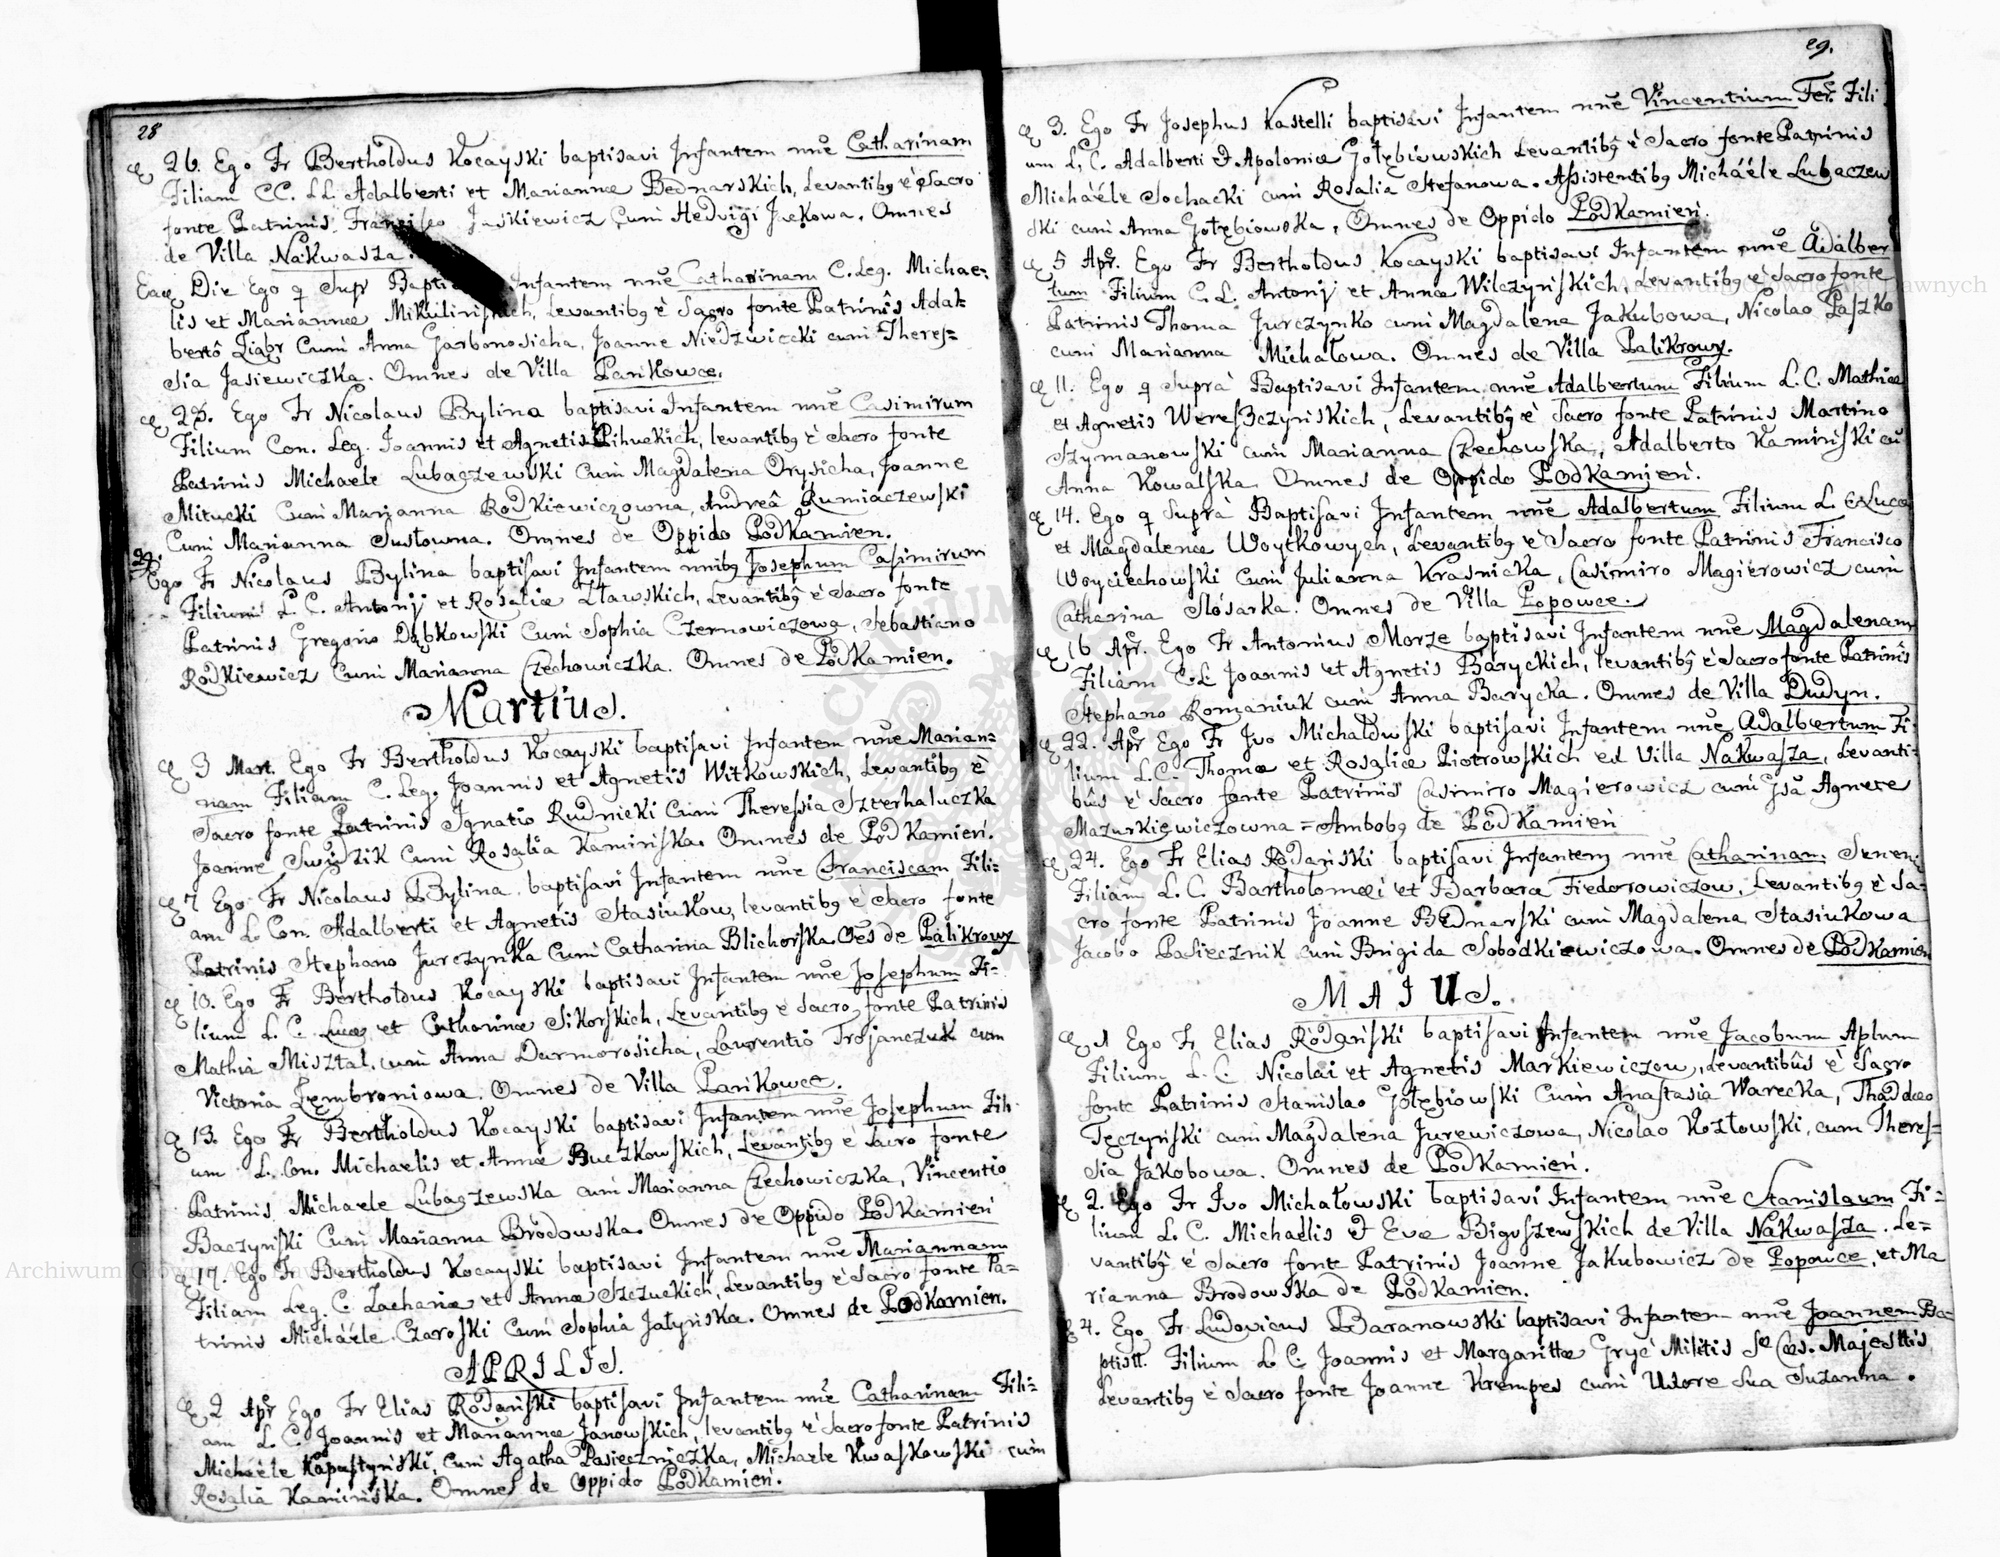 28
26. Ego Fr Bertholdus Kocayski baptisavi Infantem nnē Catharinam
Filiam CC. LL Adalberti et Mariannæ Bednarskich, Levantibg è Sacro
fonte Patrinis Francisco Juskiewicz Cum Hedvigi Jackowa. Omnes
de Villa Nakwasza.
Eadē Die Ego q Supr Infantem nnē Catharinam C. Leg. Michae=
lis et Mariannæ Mikulinskich, Levantibg è Sacro fonte Patrinis Adal=
bertô Ziąbr Cum Anna Garbonosicha, Joanne Niedzwiecki cum Theres=
sia Jasiewiczka. Omnes de Villa Pańkowce.
25. Ego Fr Nicolaus Bylina baptisavi Infantem nnē Casimirum
Filium Con. Leg. Joannis et Agnetis Pihuckich, levantibg è Sacro fonte
Patrinis Michaele Lubaczewski Cum Magdalena Orysicha, Joanne
Mitucki Cum Marianna Rodkiewiczowna, Andreâ Rumiaczewski
Cum Marianna Susłowna. Omnes de Oppido Podkamien.
29.
Ego Fr Nicolaus Bylina baptisavi Infantem nnibg Josephum Casimirum
Filium L. C. Antonij et Rosaliæ Ztawskich, Levantibg è Sacro fonte
Patrinis Gregorio Dąbkowski Cum Sophia Czernowiczowa, Sebastiano
Rodkiewicz Cum Marianna Czechowiczka. Omnes de Podkamien.
Martius.
3 Mart. Ego Fr Bertholdus Kocayski baptisavi Infantem nnē Marian=
nam Filiam C. Leg. Joannis et Agnetis Witkowskich, Levantibg è
Sacro fonte Patrinis Ignatio Rudnicki Cum Theressia Szterhaluczka
Joanne Swidzik Cum Rosalia Kamińska. Omnes de Podkamień.
7 Ego Fr Nicolaus Bylina baptisavi Infantem nnē Franciscam Fili=
am L. Con. Adalberti et Agnetis Stasiukow, levantibg è Sacro fonte
Patrinis Stephano Jurczynka Cum Catharina Blichorska. Oēs de Palikrowy
10. Ego Fr Bertholdus Kocayski baptisavi Infantem nnē Josephum Fi=
lium L. C. Lucæ et Catharinæ Sikorskich, Levantibg è Sacro fonte Patrinis
Mathia Misztal, cum Anna Darmorosicha, Laurentio Trojanczuk cum
Victoria Zembroniowa. Omnes de Villa Pańkowce.
13. Ego Fr Bertholdus Kocayski baptisavi Infantem nnē Josephum Fili
um L. Con. Michaelis et Annæ Buczkowskich, Levantibg è Sacro fonte
Patrinis Michaele Lubaczewska cum Marianna Czechowiczka, Vincentio
Baczyński Cum Marianna Brodowska. Omnes de Oppido Podkamień
17. Ego Fr Bertholdus Kocayski baptisavi Infantem nnē Mariannam
Filiam Leg. C. Zachariæ et Annæ Szczuckich, Levantibg è Sacro fonte Pa=
trinis Michaele Czaroski Cum Sophia Jałyńska. Omnes de Podkamien.
APRILIS.
2 Apr Ego Fr Elias Rodański baptisavi Infantem nnē Catharinam Fili=
am L. C. Joannis et Mariannæ Janowskich, levantibg è Sacro fonte Patrinis
Michaele Kapustyński, Cum Agatha Pasieczniczka, Michaele Kwaskowski cum
Rosalia Kamińska. Omnes de Oppido Podkamień.
29.
3. Ego Fr Josephus Kastelli baptisavi Infantem nnē Vincentium Fer. Fili
um L. C. Adalberti et Apoloniæ Gołębiowskich Levantibg è Sacro fonte Patrinis
Michaéle Sochacki cum Rosalia Stefanowa. Assistentibg Michaéle Lubaczew
ski cum Anna Gołębiowska, Omnes de Oppido Podkamień.
5 Apr. Ego Fr Bertholdus Kocayski baptisavi Infantem nnē Adalber
tum Filium C. L. Antonij et Annæ Wilczyńskich, Levantibg è Sacro fonte
Patrinis Thoma Jurczynko cum Magdalena Jakubowa, Nicolao Paszko
cum Marianna Michałowa. Omnes de Villa Palikrowy.
11. Ego q Suprà Baptisavi Infantem nnē Adalbertum Filium L. C. Mathiæ
et Agnetis Wereszczyńskich, Levantibg è Sacro fonte Patrinis Martino
Szymanowski cum Marianna Czechowska, Adalberto Kamiński cū
Anna Kowalska. Omnes de Oppido Podkamień.
14. Ego q Suprà Baptisavi Infantem nnē Adalbertum Filium L. C Lucæ
et Magdalenæ Woytkowych, Levantibg è Sacro fonte Patrinis Francisco
Woyciechowski Cum Julianna Krasnicka, Casimiro Magierowicz cum
Catharina Slósarka. Omnes de Villa Popowce.
16 Apr. Ego Fr Antonius Morze baptisavi Infantem nnē Magdalenam
Filiam C. L Joannis et Agnetis Baryckich, levantibg è Sacro fonte Patrinis
Stephano Romaniuk cum Anna Barycka. Omnes de Villa Dudyn.
22. Apr Ego Fr Ivo Michałowski baptisavi Infantem nnē Adalbertum Fi=
lium L. C. Thomæ et Rosaliæ Piotrowskich ex Villa Nakwasza, Levanti=
bus è Sacro fonte Patrinis Casimiro Magierowicz cum Gsā Agnete
Mazurkiewiczowna = Ambobg de Podkamień
24. Ego Fr Elias Rodański baptisavi Infantem nnē Catharinam Senen:
Filiam L. C. Bartholomæi et Barbaræ Fiedorowiczow, Levantibg è Sa=
cro fonte Patrinis Joanne Bednarski cum Magdalena Stasiukowa
Jacobo Pasiecznik cum Brigida Sobodkiewiczowa. Omnes de Podkamien
MAIUS.
1 Ego Fr Elias Rodański baptisavi Infantem nnē Jacobum Aplum
Filium L. C. Nicolai et Agnetis Markiewiczow, Levantibus è Sacro
fonte Patrinis Stanislao Gołębiowski Cum Anastasia Warecka, Thaddæo
Tęczyński cum Magdalena Jurewiczowa, Nicolao Kozłowski, cum Theres=
sia Jakobowa. Omnes de Podkamień.
2. Ego Fr Ivo Michałowski baptisavi Infantem nnē Stanislaum Fi=
lium L. C. Michaelis et Evæ Biguszewskich de Villa Nakwasza. Le=
vantibg è Sacro fonte Patrinis Joanne Jakubowicz de Popowce, et Ma
rianna Brodowska de Podkamien.
4. Ego Fr Ludovicus Baranowski baptisavi Infantem nnē Joannem Ba=
ptistt. Filium L. C. Joannis et Margarittæ Gryć Militis Sæ Cæs. Majesttis,
Levantibg è Sacro fonte Joanne Krempes cum Uxore Sua Suzanna.